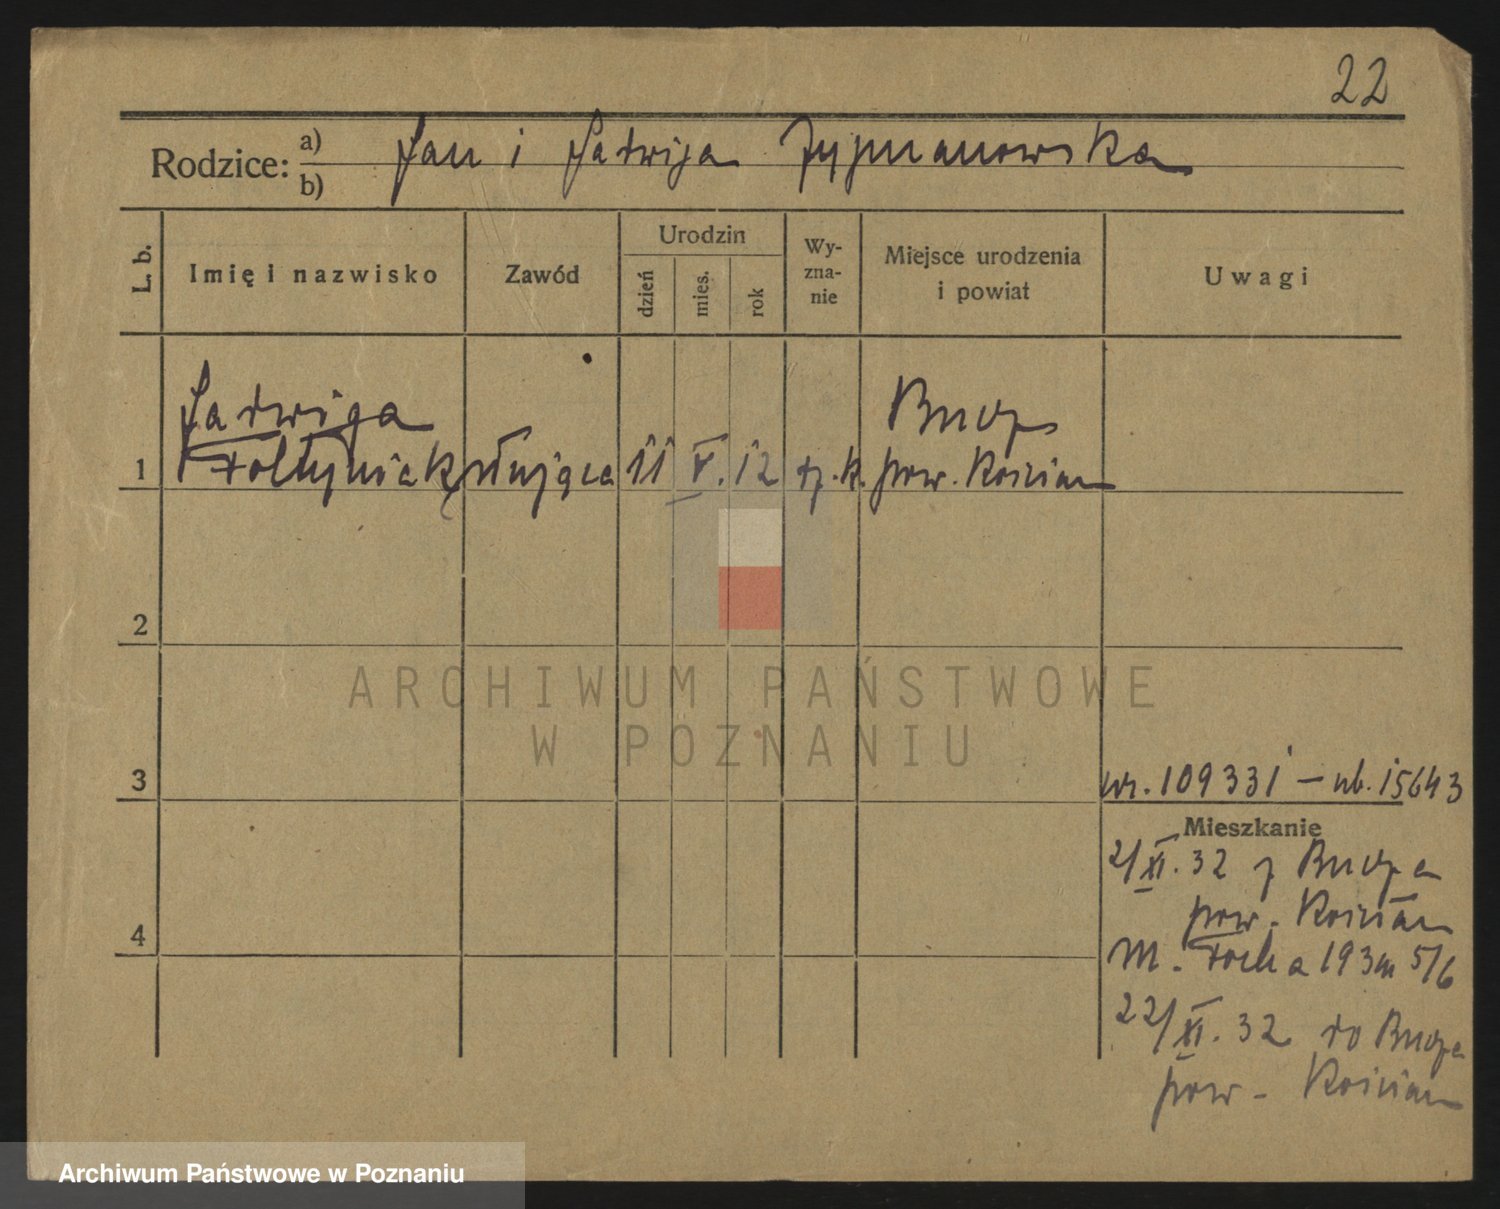 22
Rodzice: a) b) Jan i Jadwiga Zygmanowska
L. b.
Imię i nazwisko
Zawód
Urodzin
dzień
mies.
rok
Wy-
zna-
nie
Miejsce urodzenia
i powiat
Uwagi
Jadwiga
1
służąca 11 V. 12 rz. k. pow. Kościan
2
ARCHIWUM PAŃSTWOWE
W POZNANIU
3
nr. 109331 – ub. 15643
Mieszkanie
2/XI. 32 z
pow. Kościan
4
M. Focha 193 m 5/6
22/XI. 32 do
pow. Kościan
Archiwum Państwowe w Poznaniu